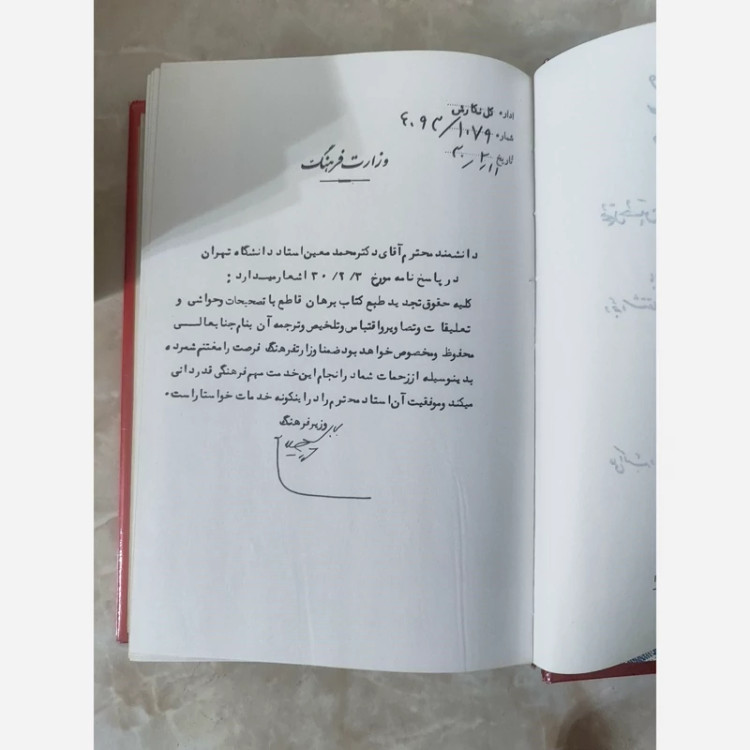 اداره کل نگارش
شماره ۴۰۹۳/۱۰۷۹
تاریخ
وزارت فرهنگ
دانشمند محترم آقای دکتر محمد معین استاد دانشگاه تهران
در پاسخ نامه مورخ ۳۰/۲/۳ اشعار میدارد :
کلیه حقوق تجدید طبع کتاب برهان قاطع با تصحیحات و حواشی و
تعلیقات و تصاویر و اقتباس و تلخیص و ترجمه آن بنام جنابعالی
محفوظ و مخصوص خواهد بود ضمنا وزارتفرهنگ فرصت را مغتنم شمرده
بدینوسیله از زحمات شما در انجام این خدمت مهم فرهنگی قدردانی
میکند و موفقیت آن استاد محترم را در اینگونه خدمات خواستار است.
وزیر فرهنگ